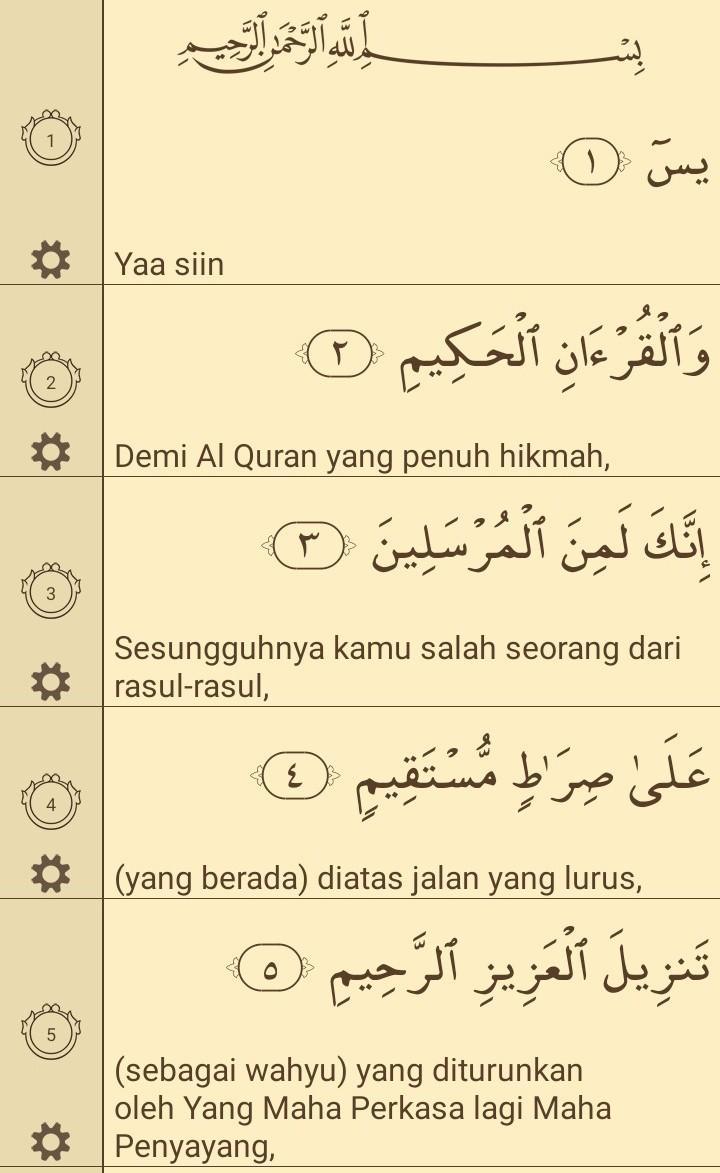 بِسْمِ ٱللَّهِ ٱلرَّحْمَٰنِ ٱلرَّحِيمِ
1
يسٓ ١
Yaa siin
وَٱلْقُرْءَانِ ٱلْحَكِيمِ ٢
2
Demi Al Quran yang penuh hikmah,
إِنَّكَ لَمِنَ ٱلْمُرْسَلِينَ ٣
3
Sesungguhnya kamu salah seorang dari
rasul-rasul,
عَلَىٰ صِرَٰطٍ مُّسْتَقِيمٍ ٤
4
(yang berada) diatas jalan yang lurus,
تَنزِيلَ ٱلْعَزِيزِ ٱلرَّحِيمِ ٥
5
(sebagai wahyu) yang diturunkan
oleh Yang Maha Perkasa lagi Maha
Penyayang,